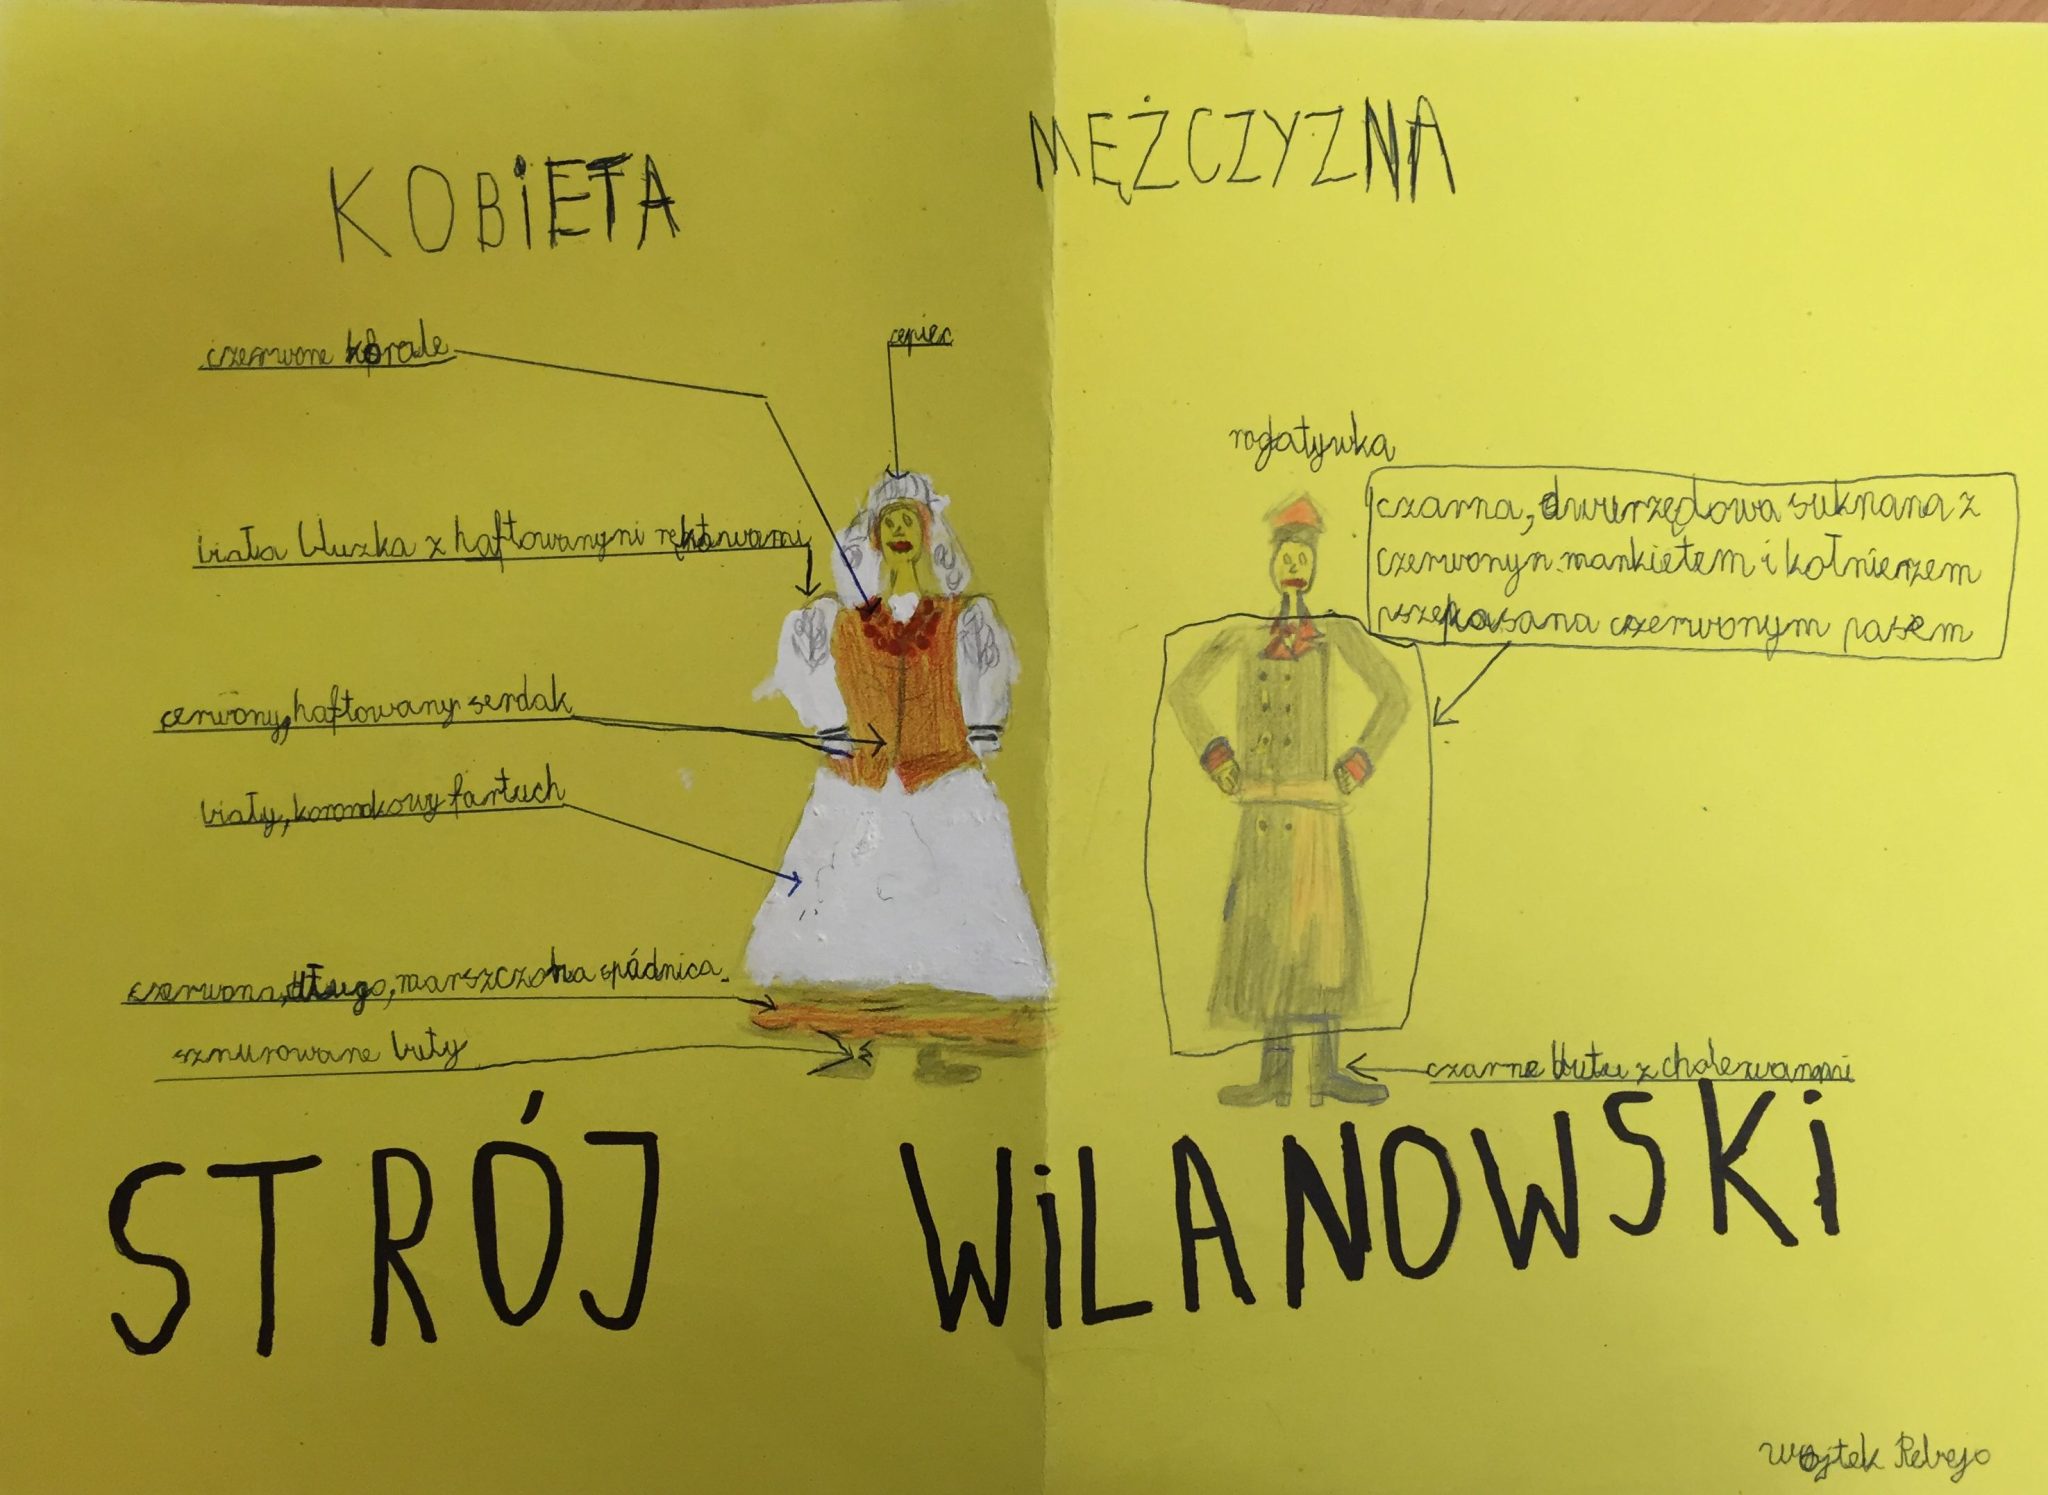 KOBIETA
MĘŻCZYZNA
czerwone korale
czepiec
biała bluzka z haftowanymi rękawami
czerwony, haftowany serdak
biały, koronkowy fartuch
czerwona, długa, marszczona spódnica
sznurowane buty
rogatywka
czarna, dwurzędowa suknana z
czerwonym mankietem i kołnierzem
przepasana czerwonym pasem
czarne buty z cholewami
STRÓJ WILANOWSKI
Wojtek